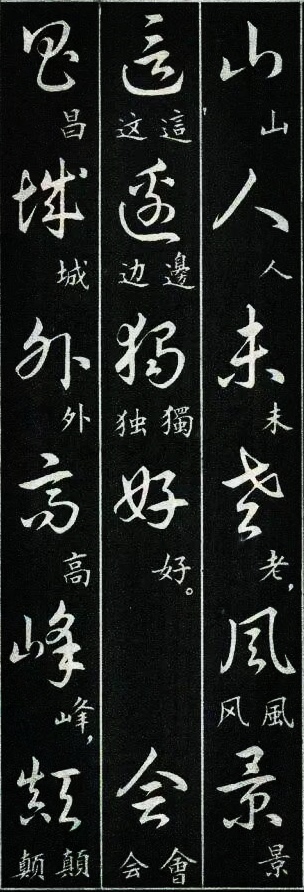 山人未老,風景
山 人 未 老, 风 風 景
這邊獨好。会
这 這 边 邊 独 獨 好。 会 會
昌城外高峰,顛
昌 城 外 高 峰, 颠 顛